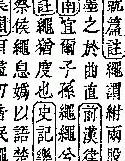 就篇註繩謂紖兩股
墨之於曲直前漢律
南宜爾子孫繩繩兮
註繩猶度也史記樂
侯繩息嬀以語楚